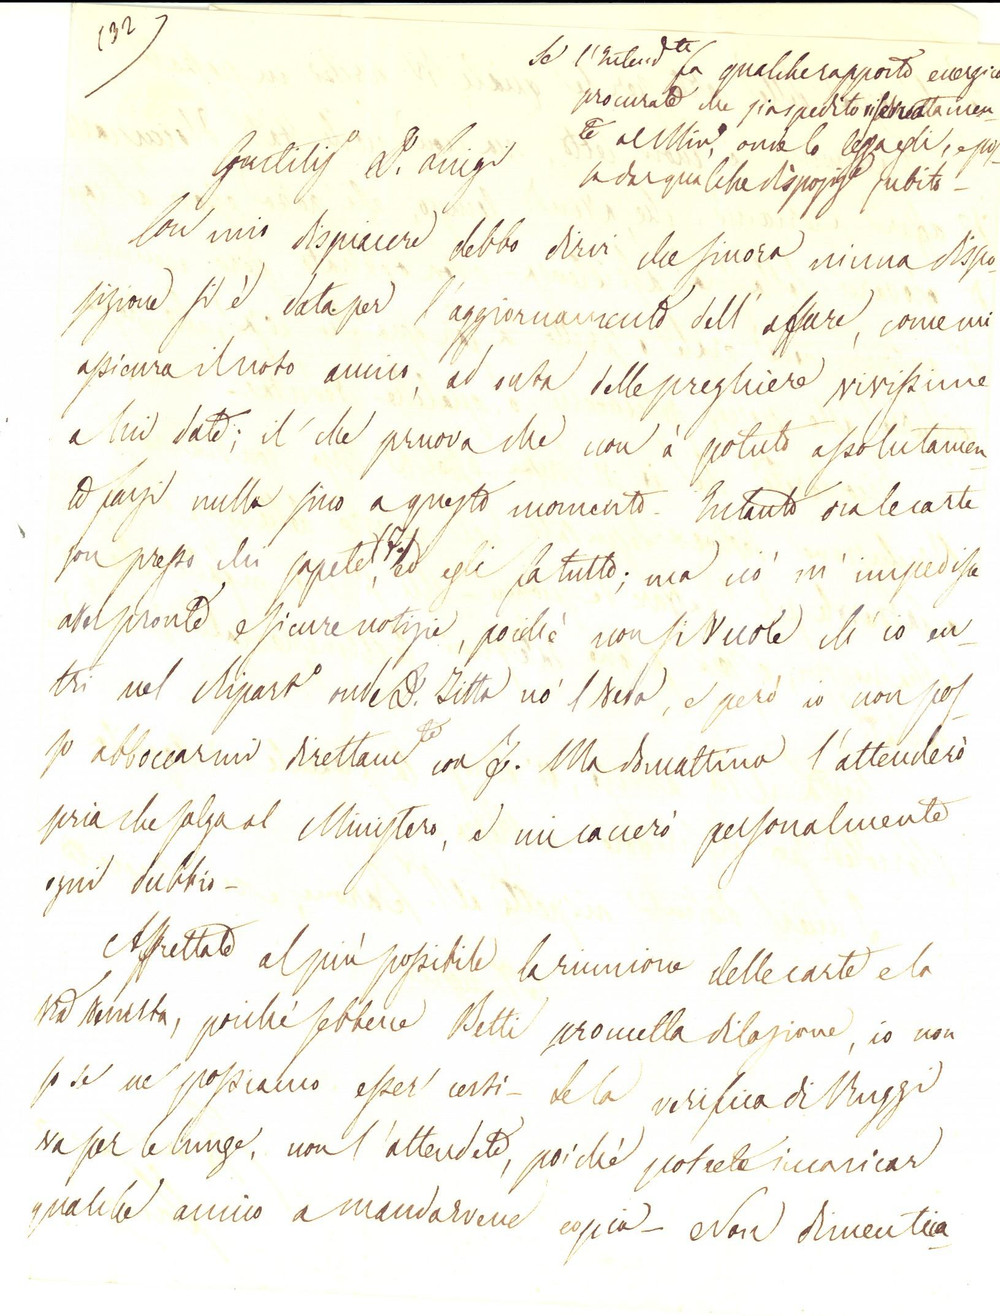 (32)
Se l'Intend.te fa qualche rapporto energico
procurate che sia spedito direttamen-
te al Min.o, onde lo legga egli, e pos-
sa dar qualche disposiz.e subito -
Gentilis.o D. Luigi
Con mio dispiacere debbo dirvi che finora niuna dispo-
sizione si è data per l'aggiornamento dell'affare, come mi
assicura il noto amico, ad onta delle preghiere vivissime
a lui date; il che pruova che non à potuto assolutamen-
te farsi nulla fino a questo momento - Intanto ora le carte
son presso chi sapete (Z.), ed egli fa tutto; ma ciò m'impedisce
aver pronte e sicure notizie, poichè non si vuole ch'io en-
tri nel Ripart.o onde D. Zitta no'l veda, e però io non pos-
so abboccarmi direttam.te con Z. Ma domattina l'attenderò
pria che salga al Ministero, e mi caverò personalmente
ogni dubbio -
Affrettate al più possibile la riunione delle carte e la
v.ra venuta, poichè sebbene Betti prometta dilazione, io non
so se ne possiamo esser certi - Se la verifica di Ruggi
va per le lunge, non l'attendete, poichè potrete incaricar
qualche amico a mandarvene copia - Non dimentica-